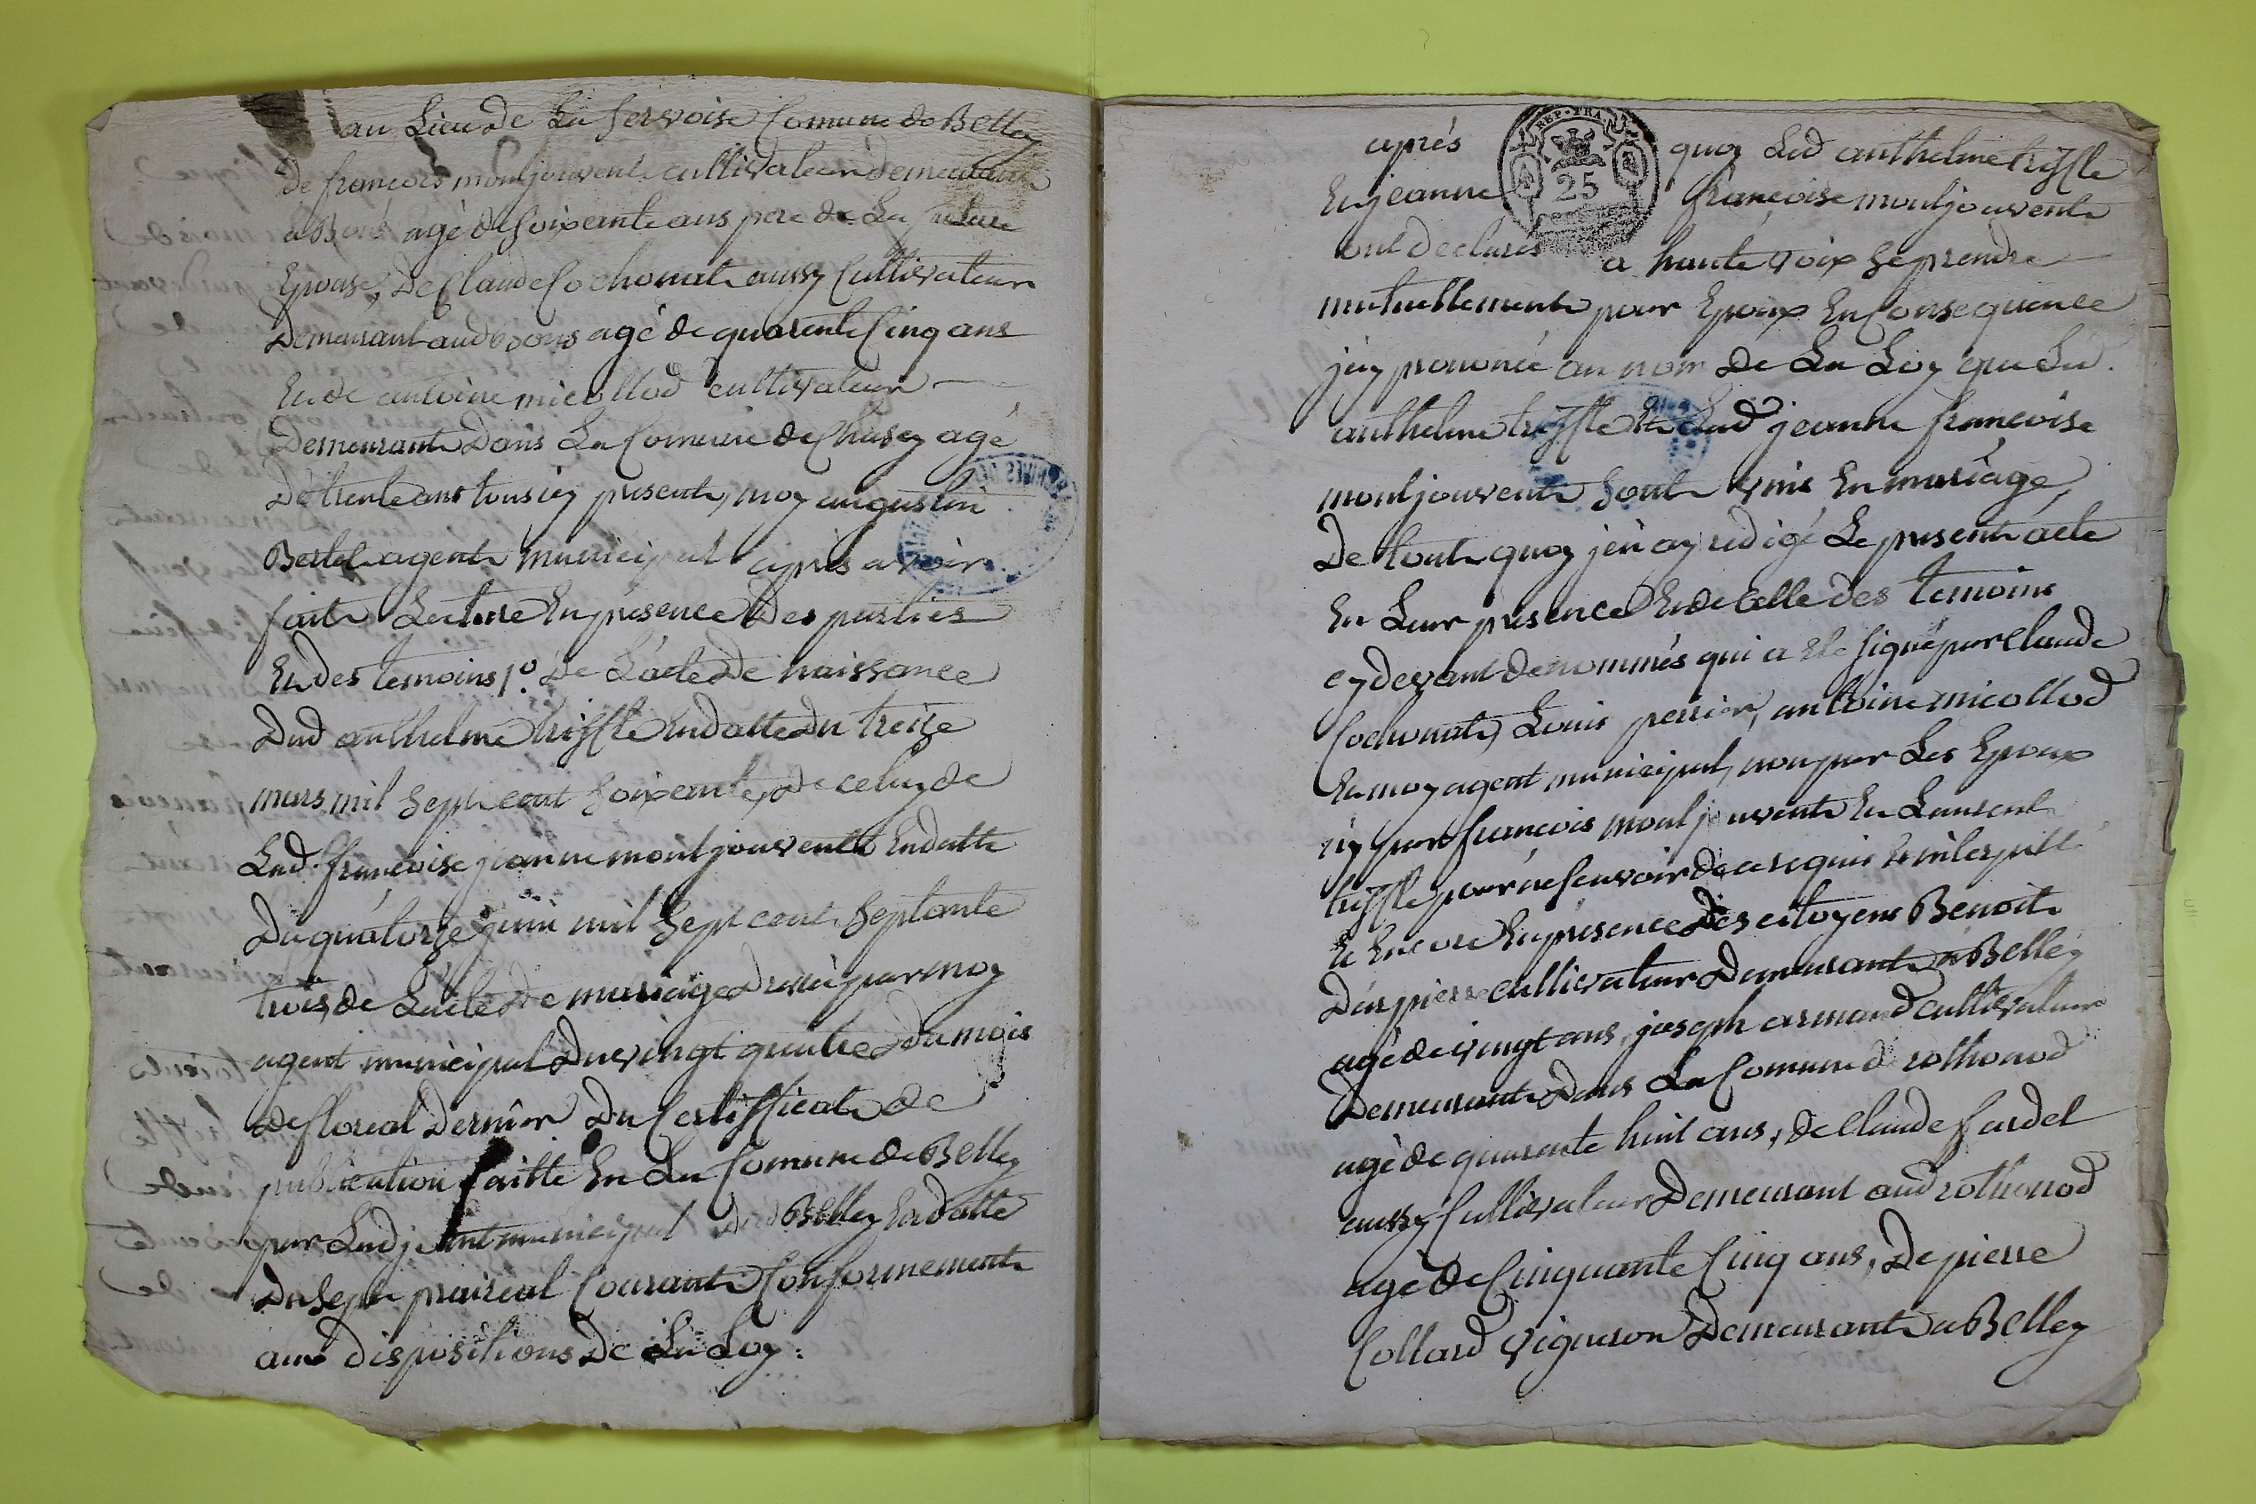 au Lieu de La servoise Comune de Belley
de françois montjouvent cultivateur demeurant
a Bons agé de soixente ans pere de La future
Epouse, De Claude Cochonat aussy Cultivateur
Demeurant aud Bons agé de quarente Cinq ans
Et de antoine micollod cultivateur
Demeurant Dans La Comune de Chasey agé
De trente ans tous icy present, moy augustin
Bertet agent municipal apres avoir
fait Lecture En presence Des parties
Et des temoins 1º. De L'acte de naissance
Dud anthelme triffle En datte du treize
mars mil sept cent soixente, De celuy de
Lad françoise jeanne montjouvent En datte
Du quatorze juin mil sept cent septante
trois, de L'acte de mariage dressé par moy
agent municipal Du vingt quatre Du mois
de floreal Dernier Du Certifficat de
publication faitte En La Comune de Belley
par Lad jent municipal Dud Belley En datte
Du sept praireal Courant Conformement
aux dispositions De La Loy.
REP. FRA.
25
après quoy Led anthelme triffle
Et jeanne françoise montjouvent
ont declarés a haute voix se prendre
mutuellement pour Epoux En Consequence
j'ay prononcé au nom de La Loy que Led
anthelme triffle Et Lad jeanne françoise
montjouvent sont unis En mariage,
De tout quoy j'en ay redigé Le present acte
En Leur presence Et de Celle des temoins
cy devant denommés qui a Eté signé par Claude
Cochonat, Louis perrier, antoine micollod
Et moy agent municipal, non par Les Epoux
ny par françois montjouvent Et Laurent
triffle pour ne sçavoir de ce requis Et interpellé
Et Encore En presence Des citoyens Benoit
Duspierre cultivateur Demeurant a Belley
agé de vingt ans, joseph armand cultivateur
Demeurant Dans La Comune de rothonod
agé de quarente huit ans, de Claude fardel
aussy Cultivateur Demeurant aud rothonod
agé de Cinquante Cinq ans, De pierre
Collard vigneron Demeurant a Belley